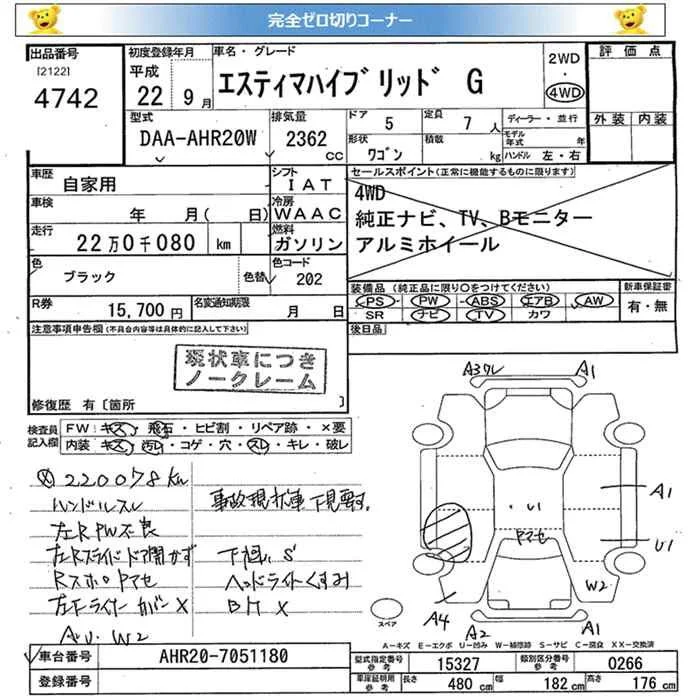 完全ゼロ切りコーナー
出品番号
[2122]
4742
初度登録年月
平成
22年 9月
車名・グレード
エスティマハイブリッド G
2WD
・
4WD
評価点
外装 内装
型式
DAA-AHR20W
排気量
2362
CC
ドア 5
定員 7人
形状 ワゴン
積載 kg
ディーラー・並行
モデル年式 年
ハンドル 左・右
車歴
自家用
シフト
IAT
車検
年 月( 日)
冷房
WAAC
走行
22万0千080 km
燃料
ガソリン
色
ブラック
色替
色コード
202
R券
15,700円
名変通知期限
月 日
セールスポイント(正常に機能するものに限ります)
4WD
純正ナビ、TV、Bモニター
アルミホイール
装備品(純正品に限り○をつけてください)
PS PW ABS エアB AW
SR ナビ TV カワ
新車保証書
有・無
後日品
注意事項申告欄(不具合内容等は具体的に記入して下さい)
現状車につき
ノークレーム
修復歴 有〔箇所 〕
検査員記入欄
FW:キズ・飛石・ヒビ割・リペア跡・×要
内装:キズ・汚レ・コゲ・穴・スレ・キレ・破レ
220078km
ハンドルスレ
左R PW不良
左Rスライドドア開かず
事故現状車 下見要す.
下廻りS
ヘッドライトくすみ
A U W2
A3クレ
A1
A1
U1
U1
W2
A4
A2
A1
スペア
A-キズ E-エクボ U-凹み W-補修跡 S-サビ C-腐食 XX-交換済
車台番号
AHR20-7051180
登録番号
型式指定番号
参考
15327
類別区分番号
参考
0266
車庫証明用
参考
長さ 480 cm
幅 182 cm
高さ 176 cm